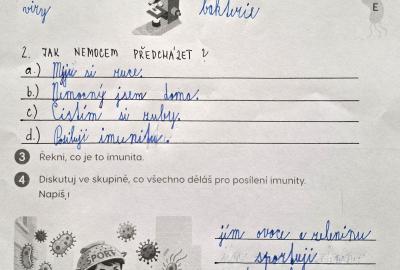 viry
bakterie
E
2. JAK NEMOCEM PŘEDCHÁZET?
a.) Myji si ruce.
b.) Nemocný jsem doma.
c.) Čistím si zuby.
d.) Posiluji imunitu.
3 Řekni, co je to imunita.
4 Diskutuj ve skupině, co všechno děláš pro posílení imunity.
Napiš,
SPORT
jím ovoce a zeleninu
sportuji